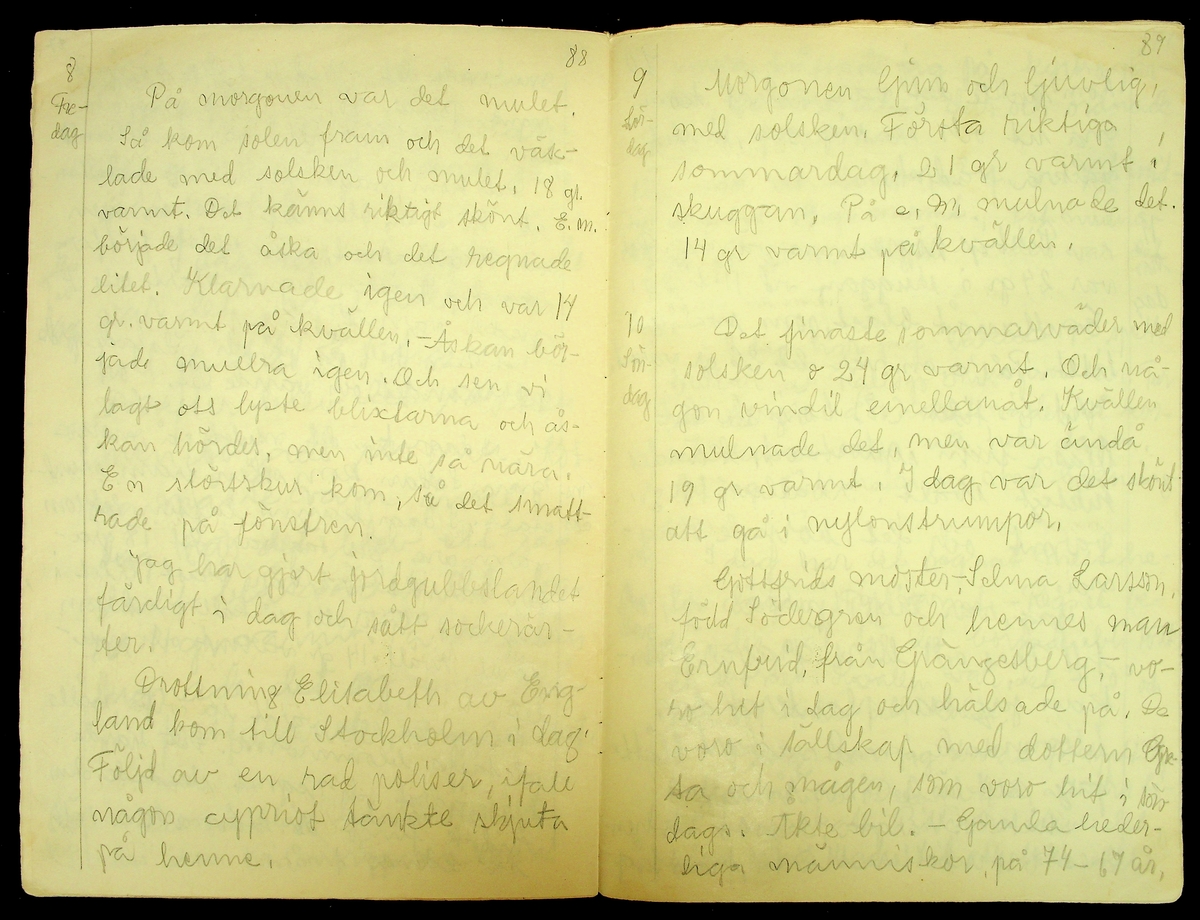 88
8
Fre-
dag
På morgonen var det mulet.
Så kom solen fram och det väx-
lade med solsken och mulet, 18 gr.
varmt. Det känns riktigt skönt. E.m.
började det åska och det regnade
litet. Klarnade igen och var 14
gr. varmt på kvällen. – Åskan bör-
jade mullra igen. Och sen vi
lagt oss lyste blixtarna och ås-
kan hördes, men inte så nära.
En störtskur kom, så det smatt-
rade på fönstren.
Jag har gjort jordgubbslandet
färdigt i dag och sått sockerär-
ter.
Drottning Elisabeth av Eng-
land kom till Stockholm i dag.
Följd av en rad poliser, ifall
någon cypriot tänkte skjuta
på henne.
89
9
Lör-
dag
Morgonen ljum och ljuvlig,
med solsken. Första riktiga
sommardag. 21 gr varmt i
skuggan. På e.m. mulnade det.
14 gr varmt på kvällen.
10
Sön-
dag
Det finaste sommarväder med
solsken o 24 gr varmt. Och nå-
gon vindil emellanåt. Kvällen
mulnade det, men var ändå
19 gr varmt. I dag var det skönt
att gå i nylonstrumpor.
Gottfrids moster, Selma Larsson,
född Södergren och hennes man
Ernfrid, från Grängesberg, – vo-
ro hit i dag och hälsade på. De
voro i sällskap med dottern Gre-
ta och mågen, som voro hit i sön
dags. Åkte bil. – Gamla heder-
liga människor, på 74 – 67 år.